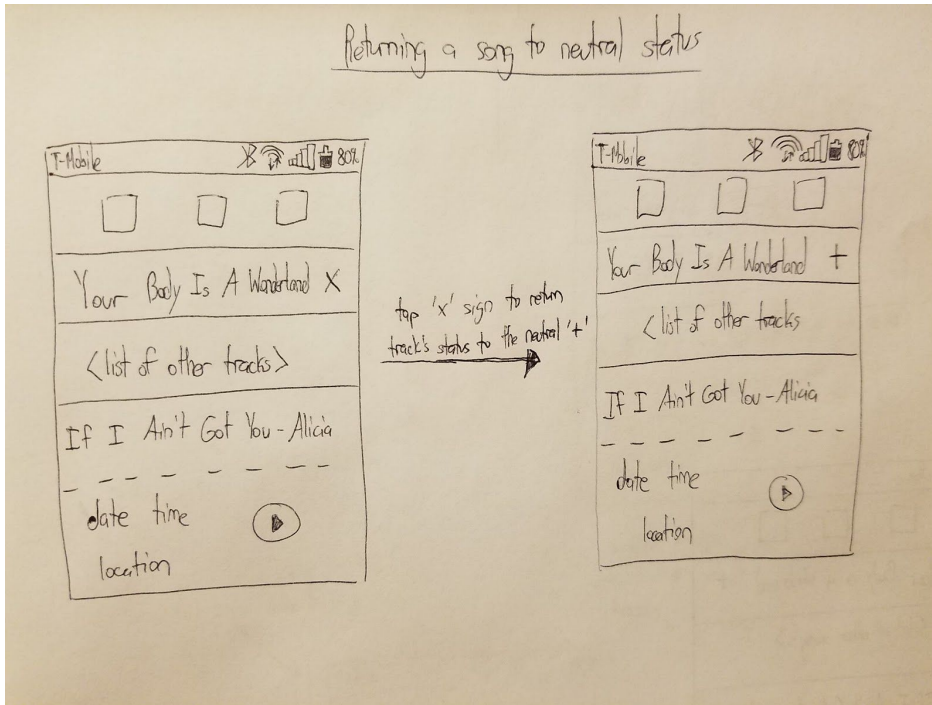 Returning a song to neutral status
T-Mobile 80%
Your Body Is A Wonderland X
<list of other tracks>
If I Ain't Got You - Alicia
date time
location
tap 'x' sign to return
track's status to the neutral '+'
T-Mobile 80%
Your Body Is A Wonderland +
<list of other tracks
If I Ain't Got You - Alicia
date time
location